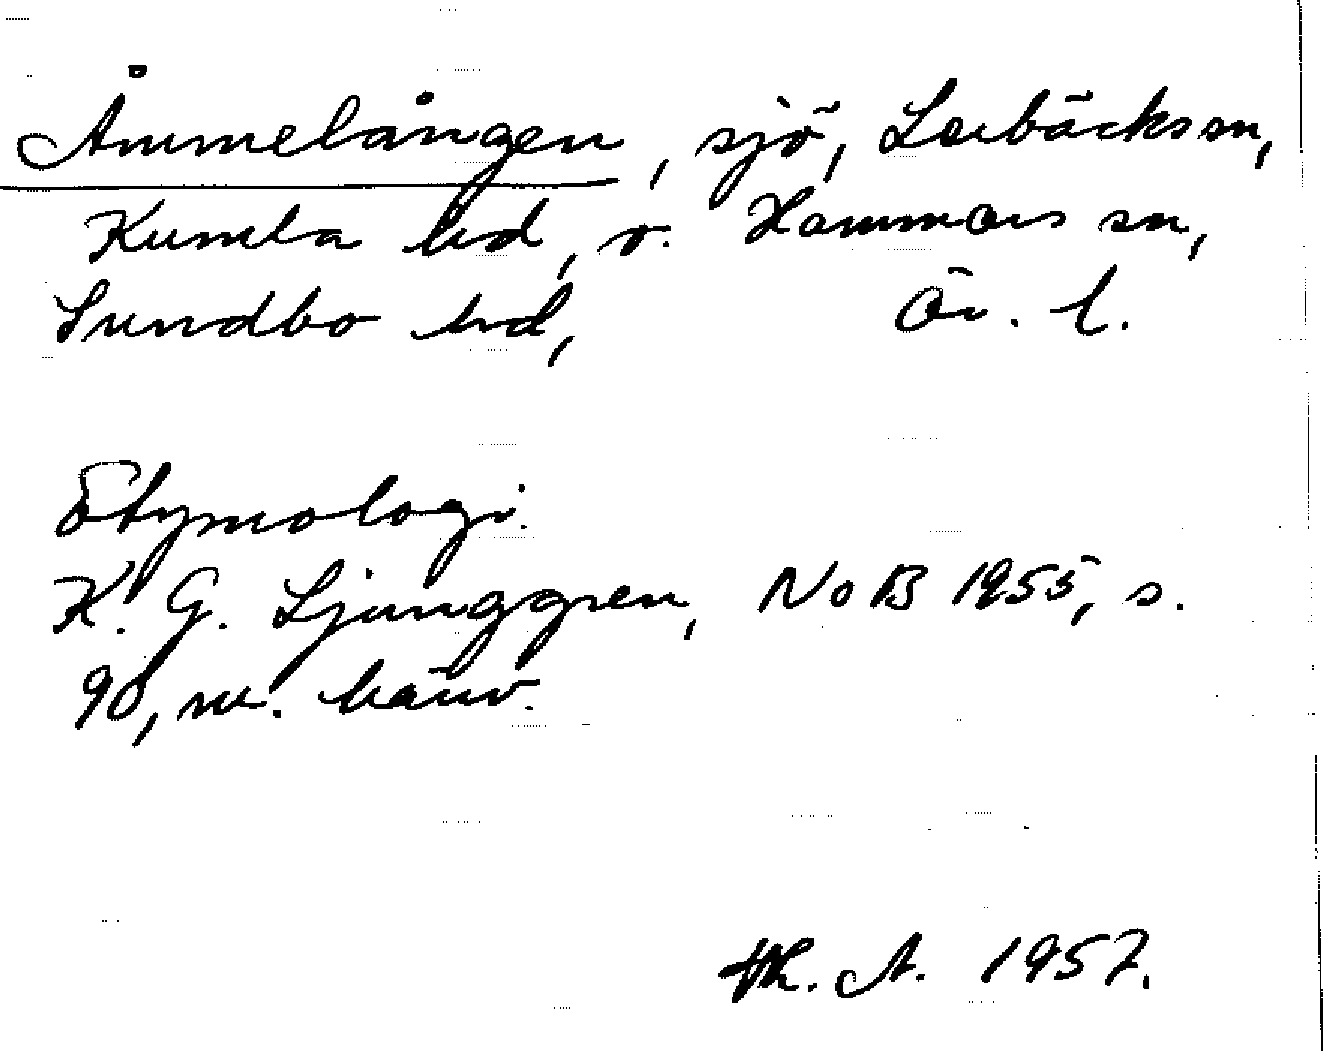 Åmmelången, sjö, Lerbäcks sn,
Kumla hd, o. Hammars sn,
Sundbo hd, Ör. l.
Etymologi.
K. G. Ljunggren, NoB 1955, s.
90, m. hänv.
Th. A. 1957.